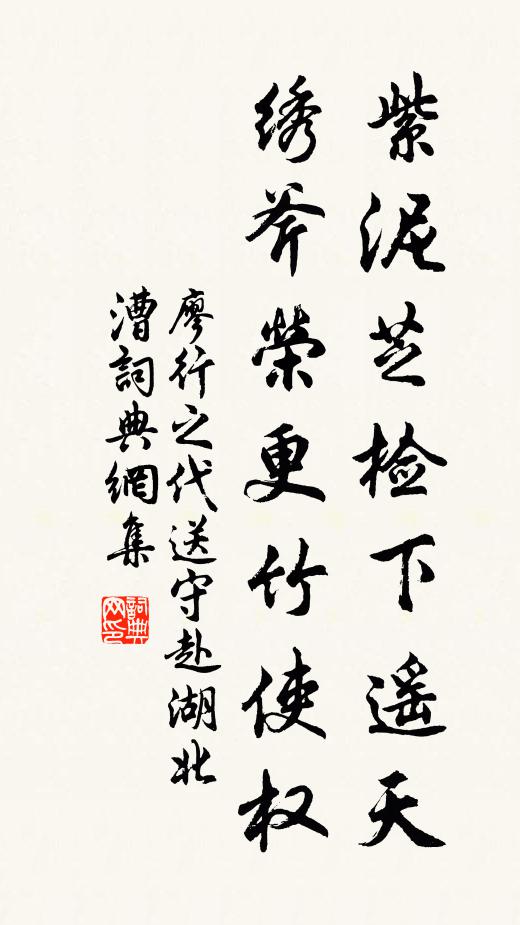 紫泥芝检下遥天
绣斧荣更竹使权
廖行之代送守赴湖北
漕詞典網集
詞典
网印